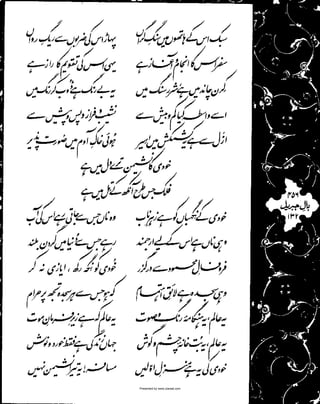 سبک اس کے ہاتھوں میں سنگِ گراں پہاڑ اس کی ضربوں سے ریگِ رواں
سفر اس کا انجام و آغاز ہے یہی اس کی تقویم کا راز ہے
کرن چاند میں ہے شرر سنگ میں یہ بے رنگ ہے ڈوب کر رنگ میں
اسے واسطہ کیا کم و بیش سے نشیب و فراز و پس و پیش سے
ازل سے ہے یہ کشمکش میں اسیر ہوئی خاکِ آدم میں صورت پذیر
خودی کا نشیمن ترے دل میں ہے
فلک جس طرح آنکھ کے تل میں ہے
خودی کے نگہباں کو ہے زہرِ ناب وہ ناں جس سے جاتی رہے اس کی آب
وہی ناں ہے اس کے لیے ارجمند رہے جس سے دنیا میں گردن بلند
فرو فالِ محمود سے درگزر خودی کو نگہ رکھ، ایازی نہ کر
وہی سجدہ ہے لائقِ اہتمام کہ ہو جس سے ہر سجدہ تجھ پر حرام
یہ عالم، یہ ہنگامۂ رنگ و صوت یہ عالم کہ ہے زیرِ فرمانِ موت
یہ عالم، یہ بت خانۂ چشم و گوش جہاں زندگی ہے فقط خورد و نوش
خودی کی یہ ہے منزلِ اوّلیں مسافر! یہ تیرا نشیمن نہیں
بالِ جبریل
۱۳۲
Presented by www.ziaraat.com